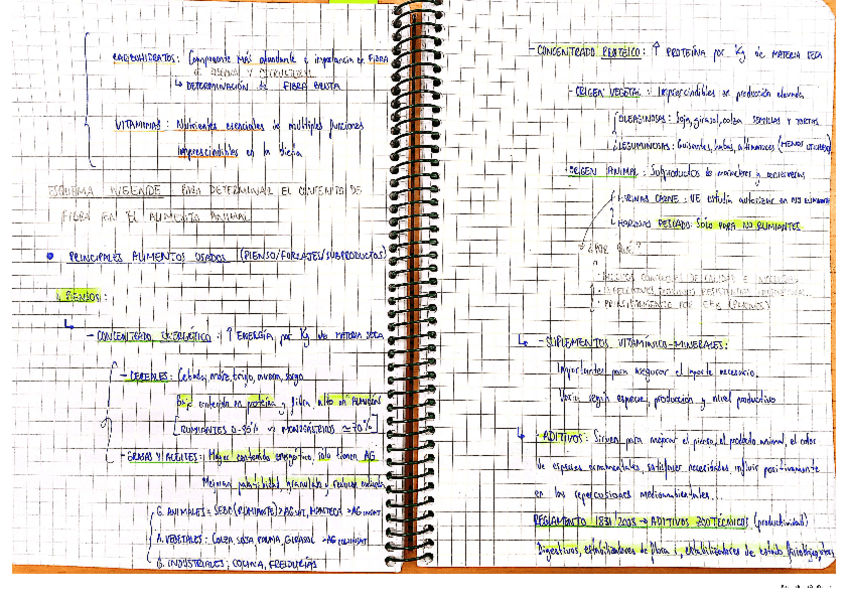 CARBOHIDRATOS: Componente más abundante e importancia en FIBRA
DE RESERVA Y ESTRUCTURAL
↳ DETERMINACIÓN de FIBRA BRUTA
VITAMINAS: Nutrientes esenciales de múltiples funciones
imprescindibles en la dieta
ESQUEMA WEENDE PARA DETERMINAR EL CONTENIDO DE
FIBRA EN EL ALIMENTO ANIMAL
• PRINCIPALES ALIMENTOS USADOS (PIENSO/FORRAJES/SUBPRODUCTOS)
1. PIENSOS:
↳ - CONCENTRADO ENERGÉTICO: ↑ ENERGÍA por Kg de MATERIA SECA
- CEREALES: Cebada, maíz, trigo, avena, sorgo
Bajo contenido en proteína y fibra, alto en ALMIDÓN
- GRASAS Y ACEITES: Mayor contenido energético, sólo tienen AG
Mejoran palatabilidad, granulado y
G. ANIMALES = SEBO (RUMIANTE)
A. VEGETALES: COLZA, SOJA, PALMA, GIRASOL
G. INDUSTRIALES: FREIDURÍAS
- CONCENTRADO PROTEICO: ↑ PROTEÍNA por Kg de MATERIA SECA
- ORIGEN VEGETAL: Imprescindibles en producción elevada
OLEAGINOSAS: Soja, girasol, colza SEMILLAS Y TORTAS
LEGUMINOSAS: Guisantes, habas, altramuces (MENOS UTILIZADO)
- ORIGEN ANIMAL: Subproductos de mataderos y
HARINAS CARNE: UE estudia autorizar en NO RUMIANTES
HARINAS PESCADO: SÓLO PARA NO RUMIANTES
¿POR QUÉ?
↳ - SUPLEMENTOS VITAMÍNICO-MINERALES:
Importantes para asegurar el aporte necesario.
Varía según especie, producción y nivel productivo
↳ - ADITIVOS: Sirven para mejorar el pienso, el producto animal, el color
de especies ornamentales, satisfacer necesidades, influir positivamente
en las repercusiones medioambientales...
REGLAMENTO 1831/2003 → ADITIVOS ZOOTÉCNICOS (productividad)
Digestivos, estabilizadores de flora i., estabilizadores de estado fisiológico,